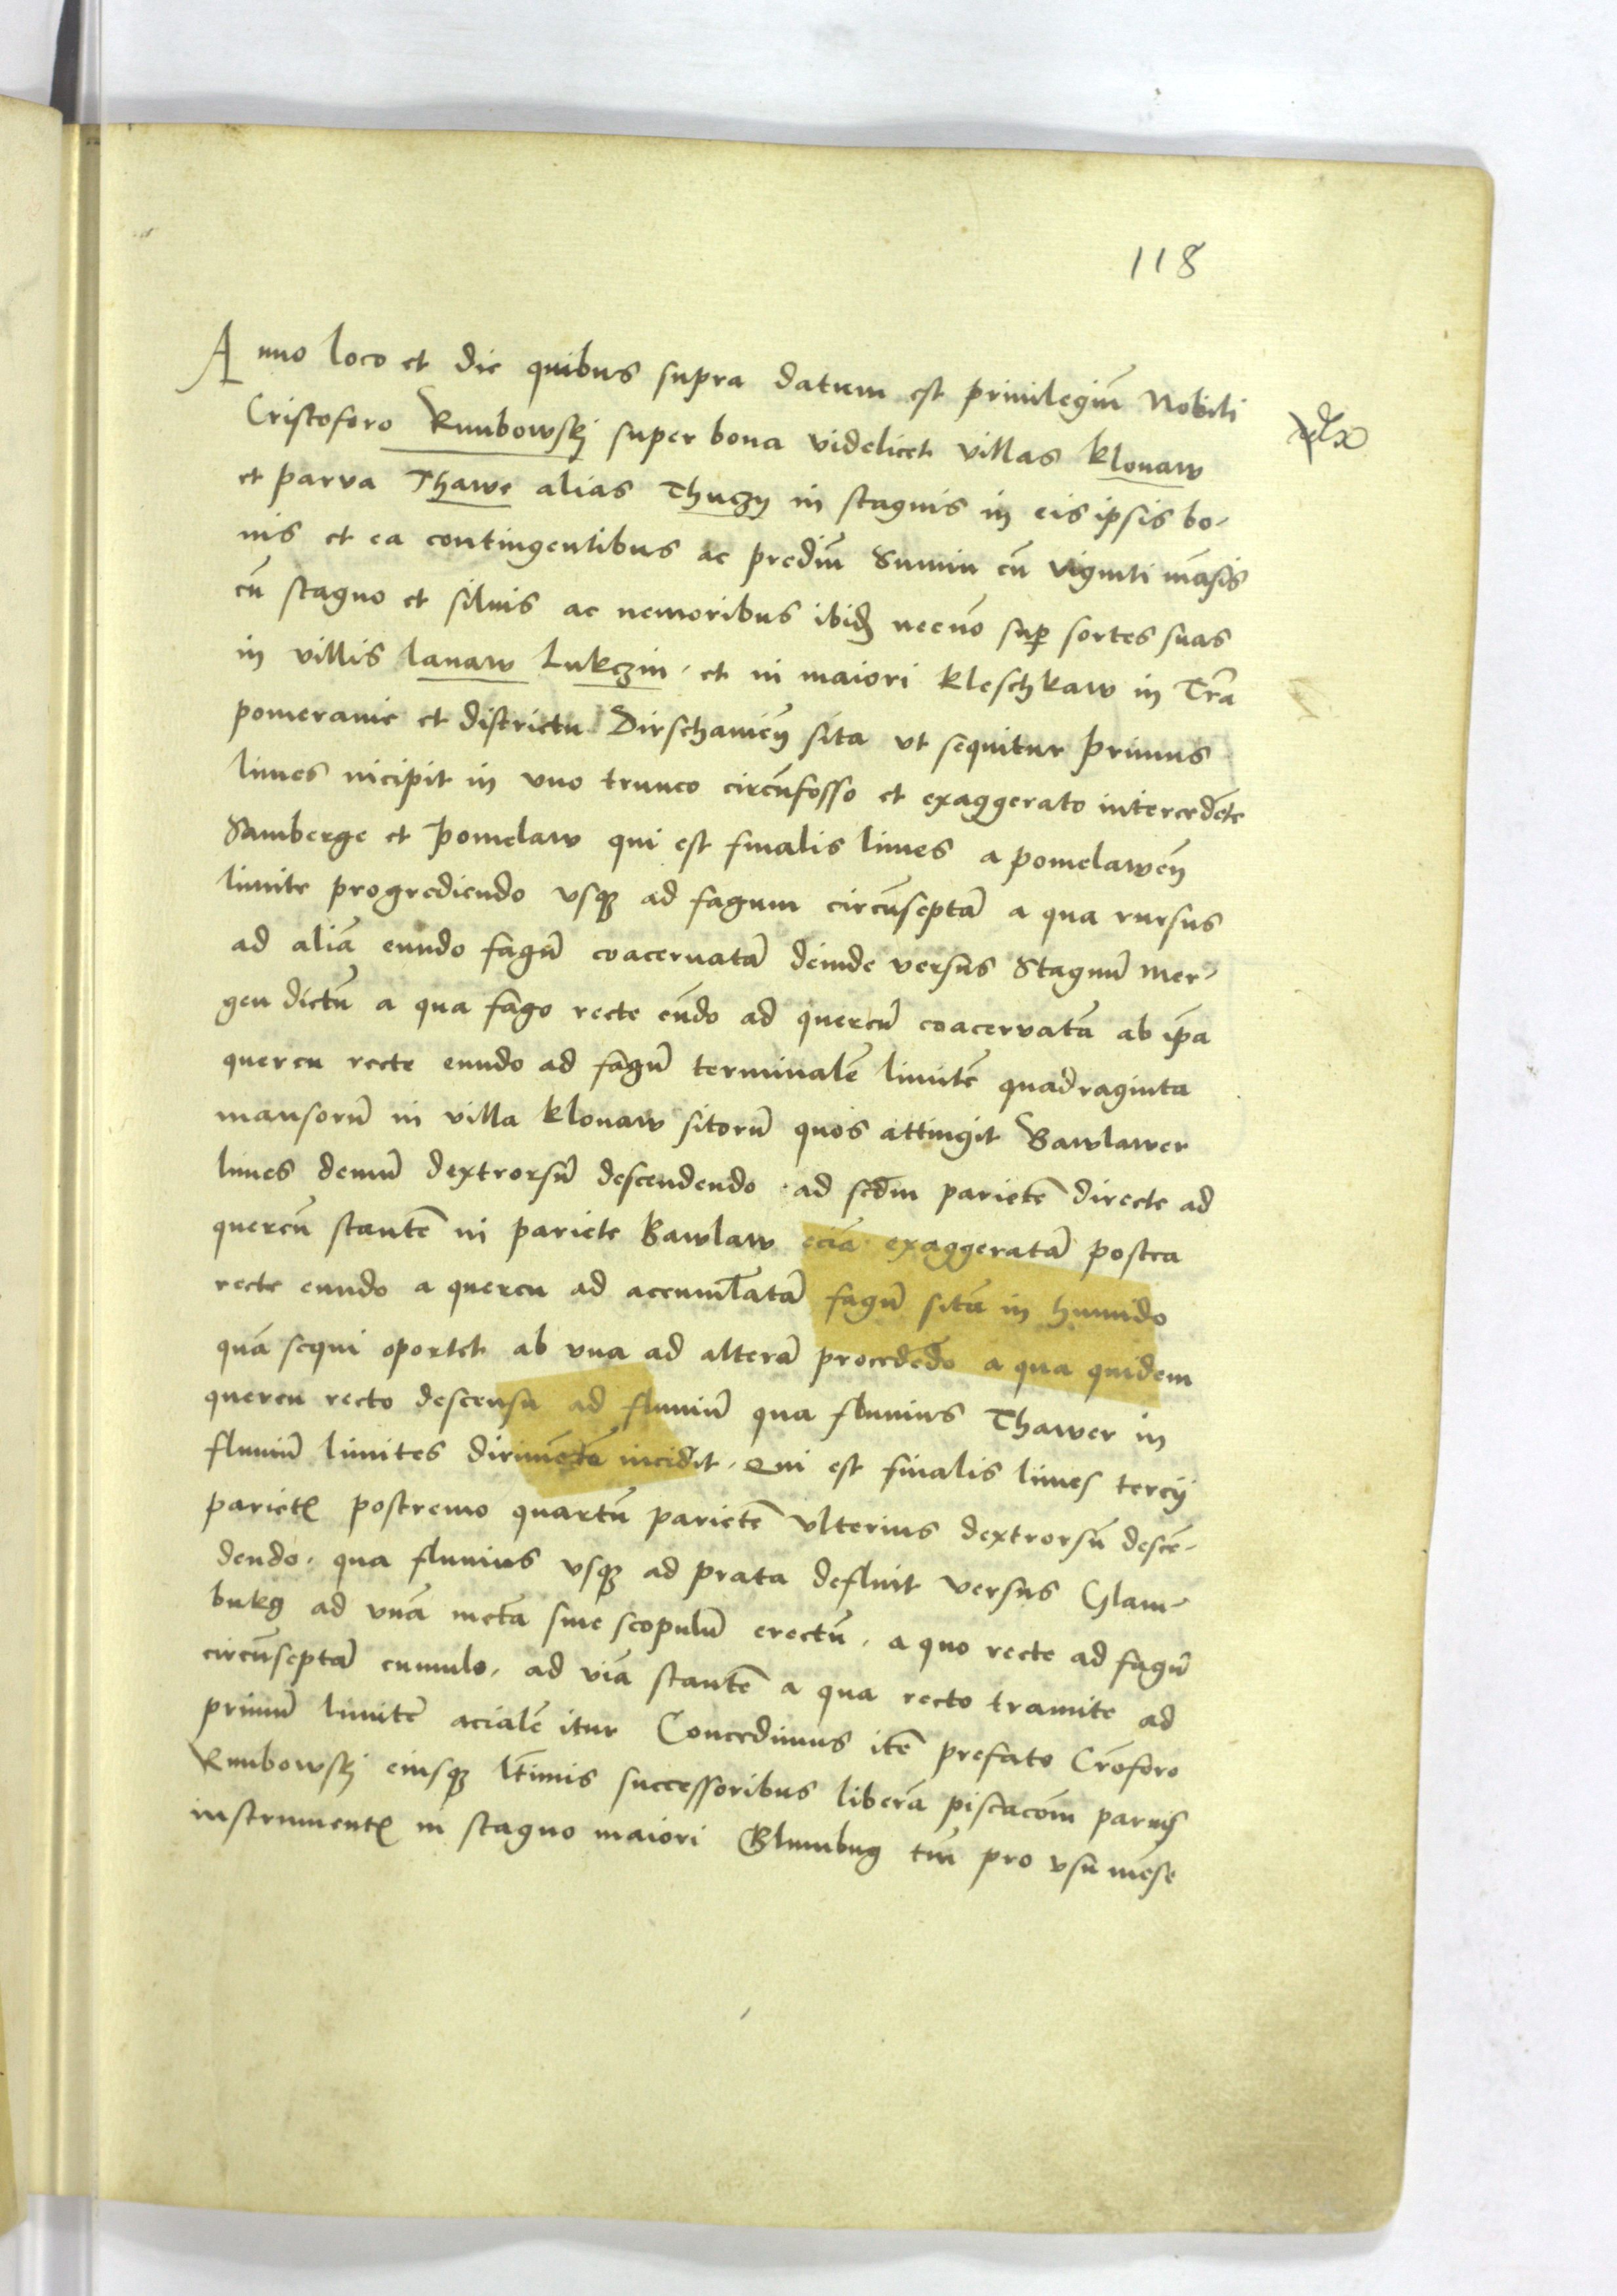 118
Anno loco et die quibus supra datum est priuilegiū Nobili
Cristoforo Rumbowskj super bona videlicet villas klonaw
et parva Thawe alias Thuczÿ in stagnis in eis ipsis bo-
nis et ea contingentibus ac prediū Sumin cū viginti māsis
cū stagno et siluis ac nemoribus ibid̄ necnō sup̱ sortes suas
in villis lanaw Lukczin et in maiori kleschkaw in Tr̄a
pomeranie et districtu Dirschauień sita vt sequitur primus
limes incipit in vno trunco circūfosso et exaggerato intercedēte
Samberge et pomelaw qui est finalis limes a pomelaweń
limite progrediendo vsq̨ ad fagum circūseptā a qua rursus
ad aliā eundo fagū coaceruatā deinde versus Stagnū mer-
gen dictū a qua fago recte eūdo ad quercū coacervatā ab ip̄a
quercu recte eundo ad fagū terminalē limitē quadraginta
mansorū in villa klonaw sitorū quos attingit Bawlawer
limes demū dextrorsū descendendo ad scd̄m parietē directe ad
quercū stantē in pariete Bawlaw eciā exaggeratā postea
recte eundo a quercu ad accumlatā fagū sitā in humido
quā sequi oportet ab vna ad alterā procedēdo a qua quidem
quercu recto descensu ad fluuiū qua fluuius Thawer in
fluuiū limites dirimētē incidit. Qui est finalis limes tercÿ
parietꝭ postremo quartū parietē vlterius dextrorsū descē-
dendo. qua fluuius vsq̨ ad prata defluit versus Glam-
bukg ad vnā metā siue scopulū erectū. a quo recte ad fagū
circūseptā cumulo. ad viā stantē a qua recto tramite ad
primū limitē acialē itur Concedimus itē prefato Cr̄oforo
Rumbowskj eiusq̨ l̄timis successoribus liberā piscacōm paruis
instrumentꝭ in stagno maiori Glumbug tm̄ pro vsu mēse